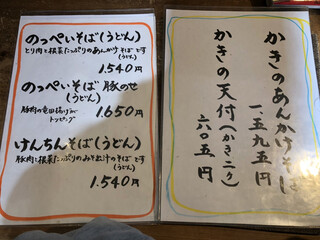 のっぺいそば(うどん)
とり肉と根菜たっぷりのあんかけそばです
(うどん)
1.540円
のっぺいそば 豚のせ
(うどん)
豚肉の竜田揚げが
トッピング
1.650円
けんちんそば(うどん)
豚肉と根菜たっぷりのみそ仕立のそばです
(うどん)
1.540円
かきのあんかけそば
一.五九五円
かきの天付(かき二ケ)
六〇五円